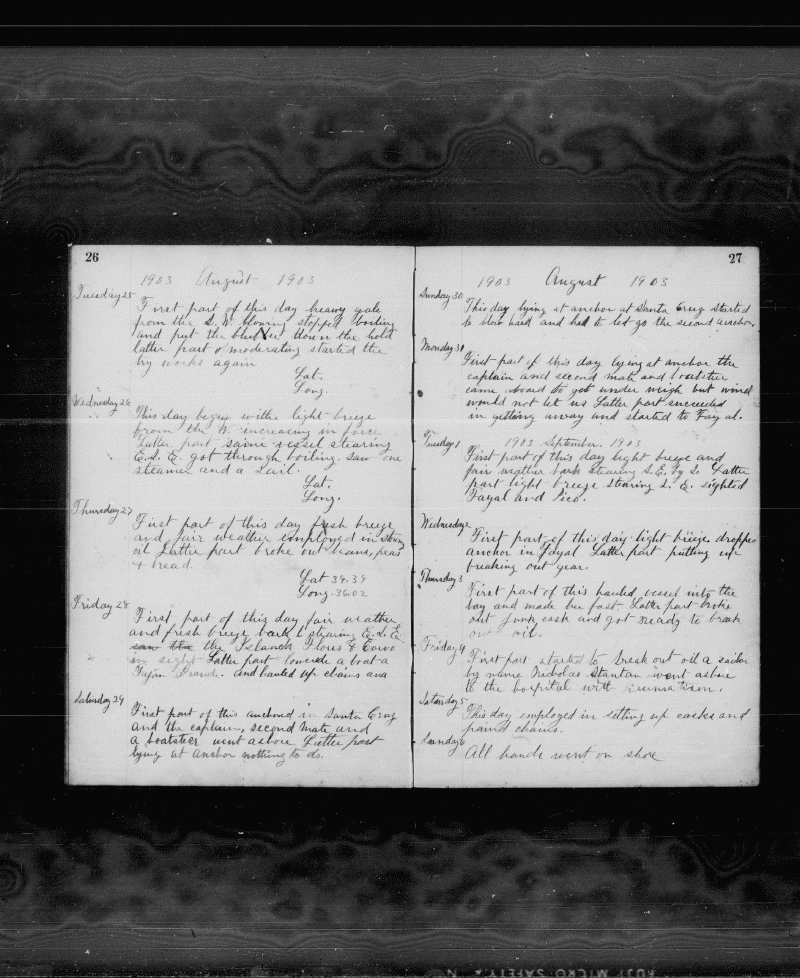 26
1903 August 1903
Tuesday 25
First part of this day heavy gale
from the S.W. blowing stopped boiling
and put the blubber down the hold
latter part moderating started the
try works again
Lat.
Long.
Wednesday 26
This day begun withe light breeze
from the W. increasing in force
Latter part saime vessel stearing
E.S.E. got through boiling. saw one
steamer and a sail.
Lat.
Long.
Thursday 27
First part of this day fresh breeze
and fair weather employed in
oil Latter part broke out beans, peas
+ bread.
Lat 39.39
Long. 36.02
Friday 28
First part of this day fair weather
and fresh breeze bark stearing E.S.E.
saw the the Islands Flores & Corvo
in sight Latter part lowered a boat a
and hauted up chains and
Saturday 29
First part of this anchored in Santa Cruz
and the captain, second mate and
a boatsteer went ashore Latter part
lying at anchor nothing to do.
27
1903 August 1903
Sunday 30
This day lying at anchor at Santa Cruz started
to blow hard and had to let go the second anchor.
Monday 31
First part of this day lying at anchor the
captain and second mate and boatsteer
came aboard to got under weigh but wind
would not let us Latter part succeeded
in getting away and started to Fayal.
1903 September. 1903
Tuesday 1
First part of this day light breeze and
fair weather bark stearing S.E. by S. Latter
part light breeze stearing S. E. sighted
Fayal and Pico.
Wednesday 2
First part of this day light breeze dropped
anchor in Fayal Latter part putting up
breaking out gear.
Thursday 3
First part of this hauled vessel into the
bay and made her fast. Latter part broke
out junk cask and got ready to break
out oil.
Friday 4
First part started to break out oil a sailor
by name Nicholas Stantan went ashore
to the hospital with rumatism.
Satarday 5
This day employed in setting up casks and
paind chains.
Sunday 6
All hands went on shore
FUJI MICRO SAFETY